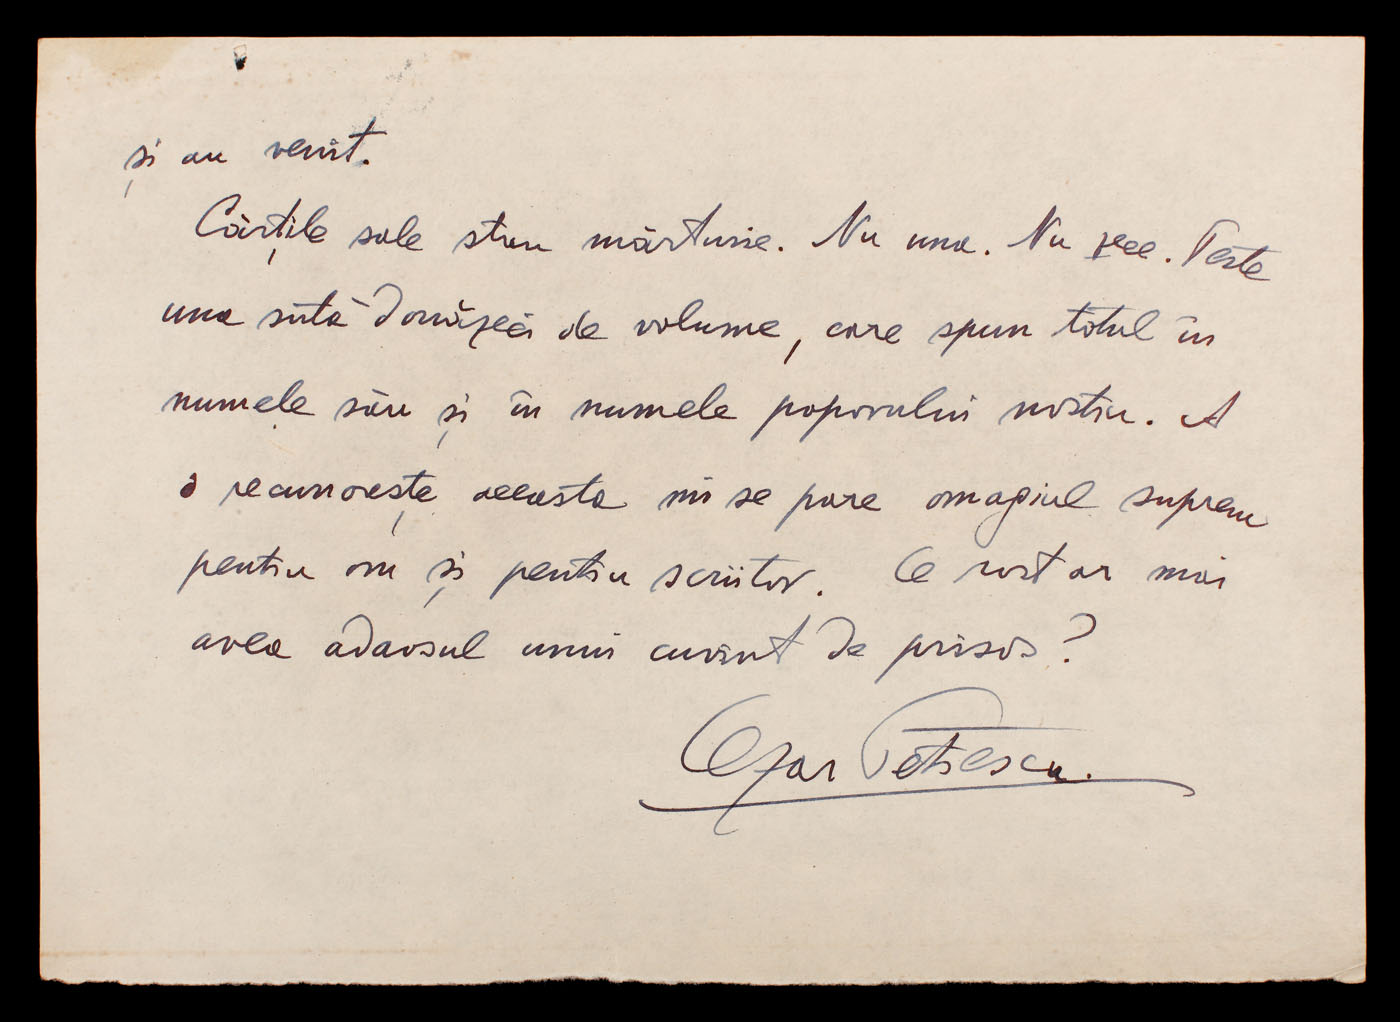 și au venit.
Cărțile sale stau mărturie. Nu una. Nu zece. Peste
una sută douăzeci de volume, care spun totul în
numele său și în numele poporului nostru. A
o recunoaște aceasta mi se pare omagiul suprem
pentru om și pentru scriitor. Ce rost ar mai
avea adaosul unui cuvînt de prisos?
Cezar Petrescu.